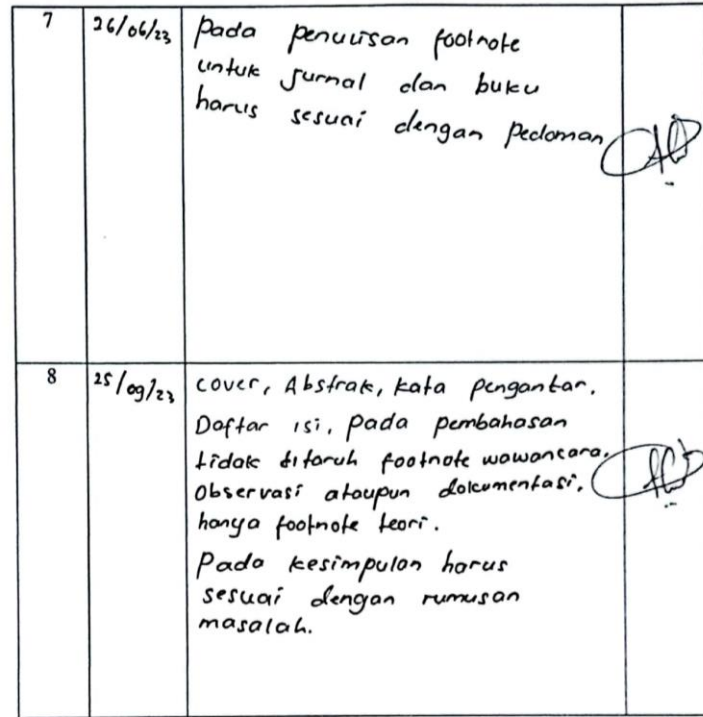 7
26/06/23
Pada penulisan footnote
untuk jurnal dan buku
harus sesuai dengan pedoman
8
25/09/23
cover, Abstrak, kata pengantar.
Daftar isi, pada pembahasan
tidak ditaruh footnote wawancara.
Observasi ataupun dokumentasi.
hanya footnote teori.
Pada kesimpulan harus
sesuai dengan rumusan
masalah.